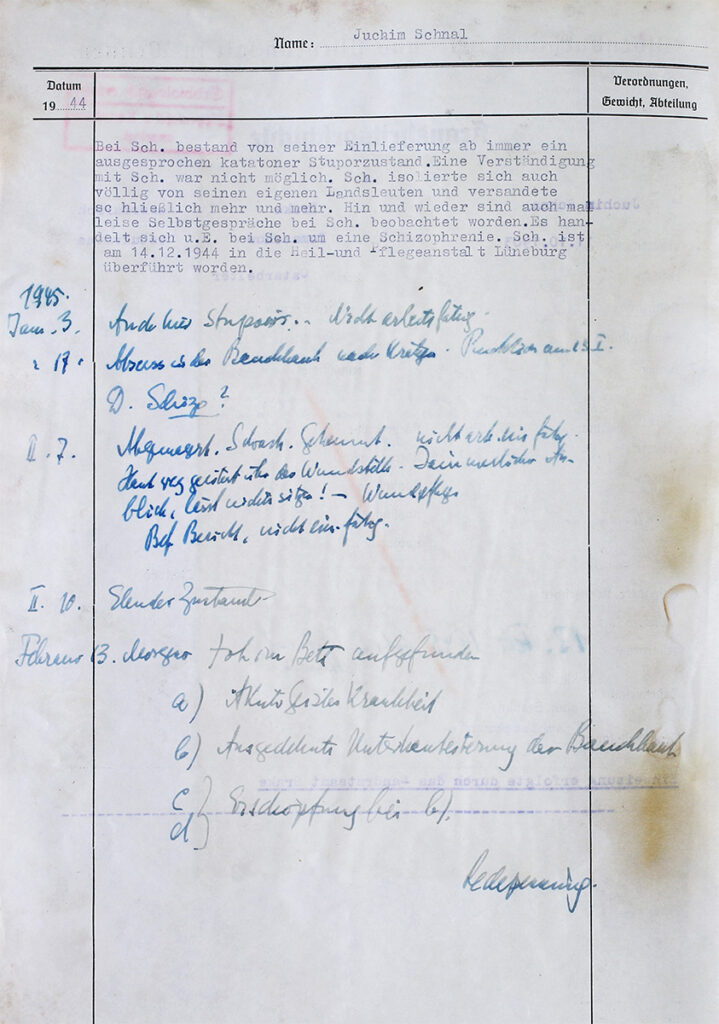 Name: Juchim Schnal
Datum
19 44
Verordnungen,
Gewicht, Abteilung
Bei Sch. bestand von seiner Einlieferung ab immer ein
ausgesprochen katatoner Stuporzustand.Eine Verständigung
mit Sch. war nicht möglich. Sch. isolierte sich auch
völlig von seinen eigenen Landsleuten und versandete
sc hließlich mehr und mehr. Hin und wieder sind auch mal
leise Selbstgespräche bei Sch. beobachtet worden.Es han-
delt sich u.E. bei Sch. um eine Schizophrenie. Sch. ist
am 14.12.1944 in die Heil-und Pflegeanstalt Lüneburg
überführt worden.
1945.
Jan. 3. Stuporös. Nicht arbeitsfähig.
" 17. Abszess in der Bauchhaut nach Krätze.
D. Schizo?
II. 7. Abgemagert. Schwach. Gehemmt. nicht
Haut weg der Wundstelle. Jämmerlicher An-
blick, lässt nichts sitzen! – Wundpflege
Bericht, nicht
II. 10. Elender Zustand
Februar 13. Morgens tot im Bett aufgefunden
a) Akute Geisteskrankheit
b) Ausgedehnte Unterhauteiterung der Bauchhaut
c
d } Erschöpfung bei b).
Redepenning.